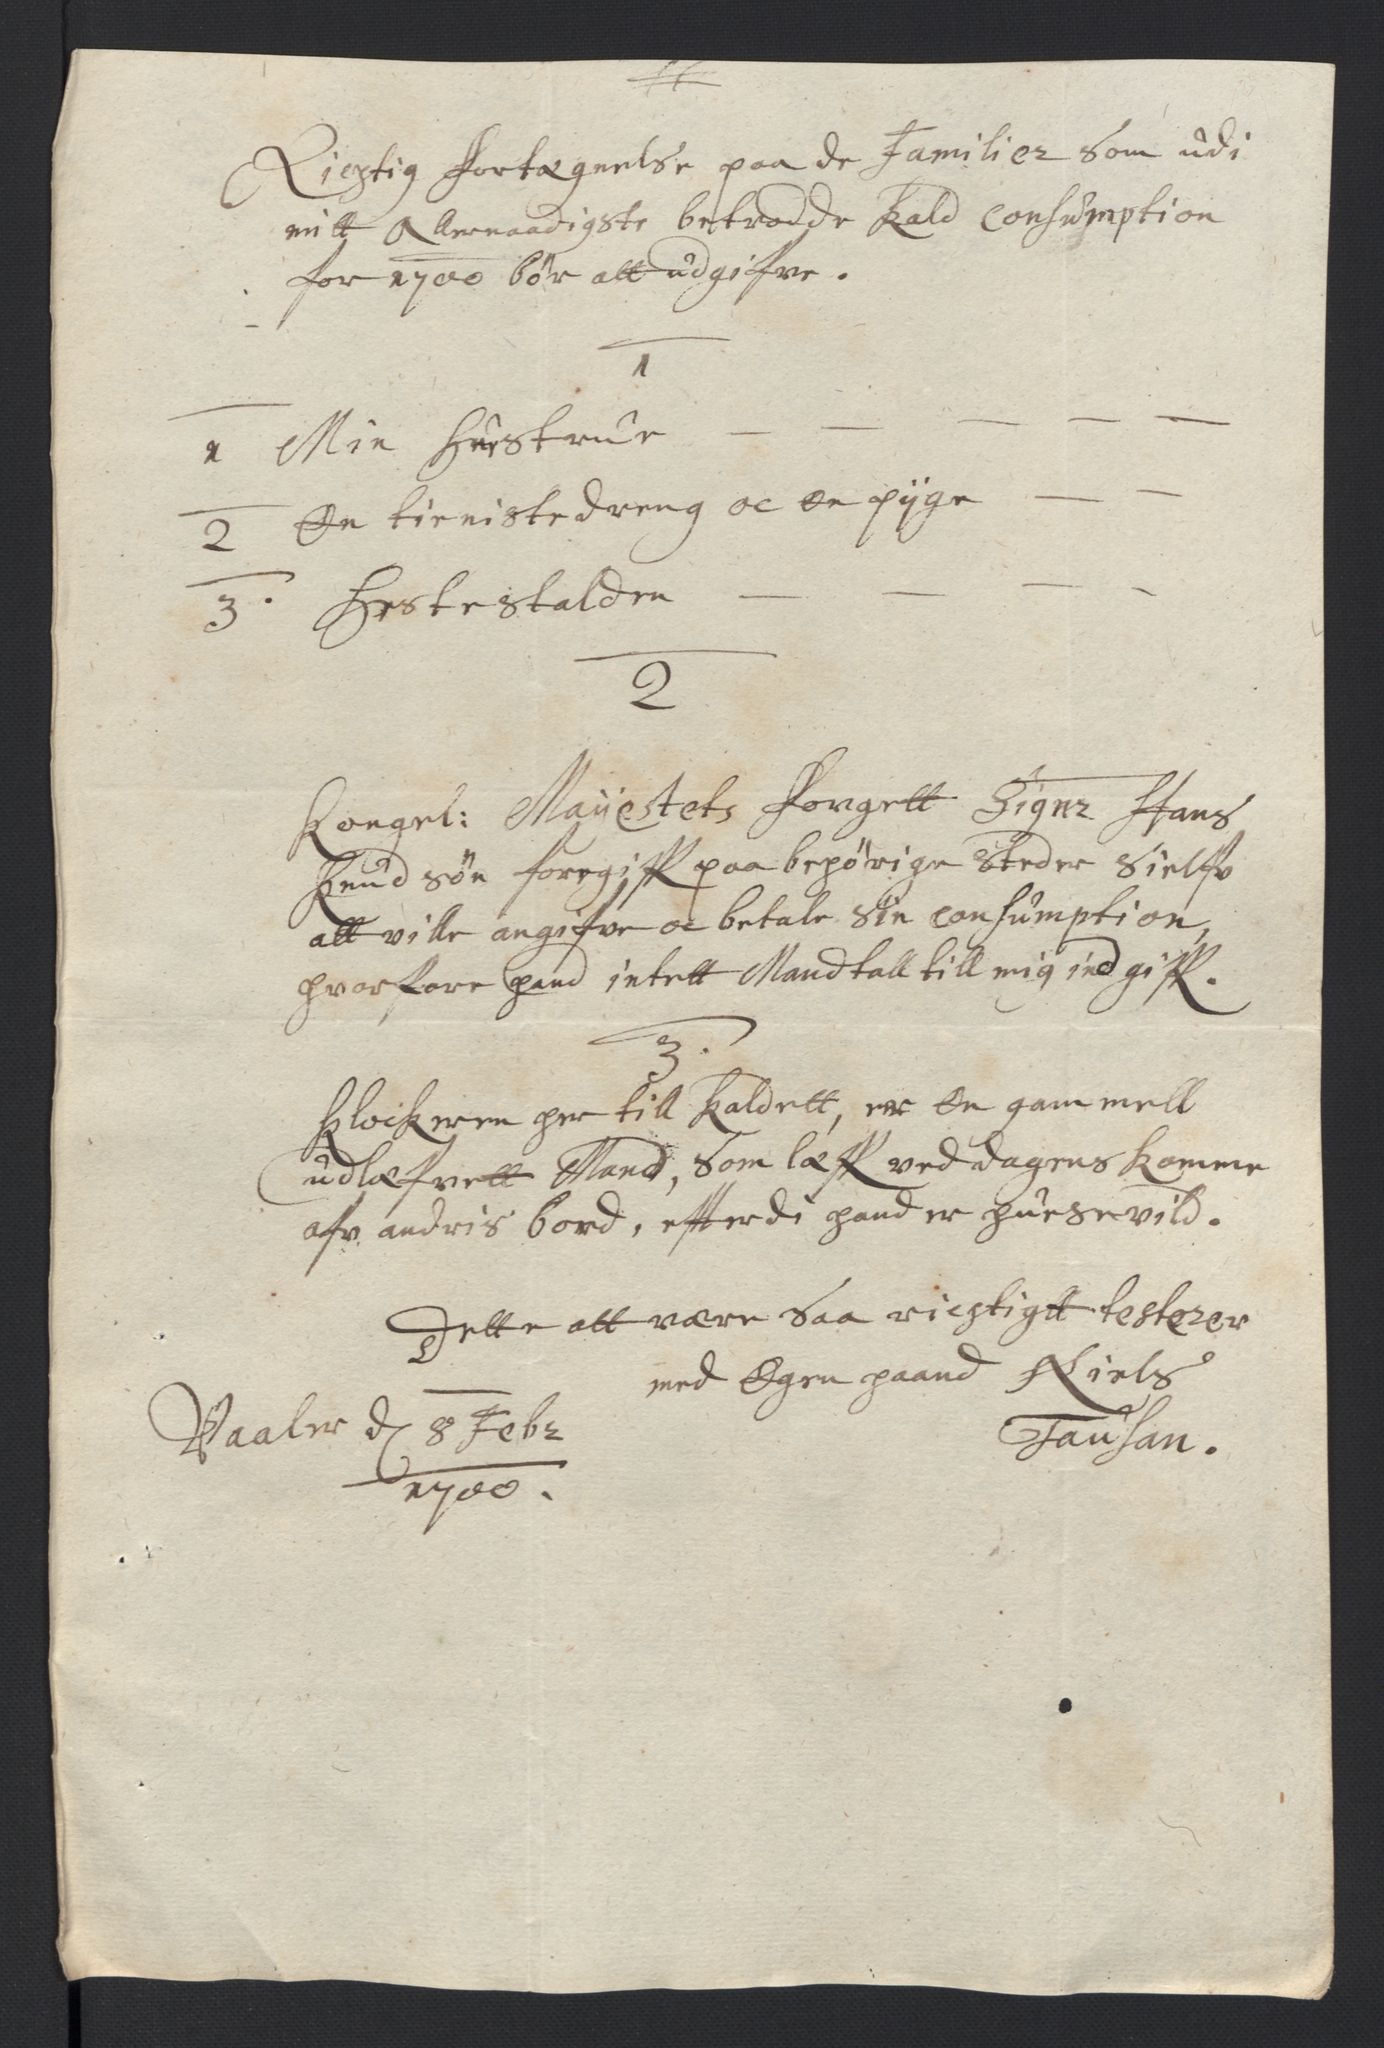 Richtig fortægnelse paa de Familier som udi
mitt Allernaadigste betrodde Kald Consumption
for 1700 bør att udgifve.
1
1 Min Huestrue
2 En tienistedreng oc en pijge
3. Hestestalden
2
Kongel: Mayestets Fougett Signr Hans
Knudsøn foregiff paa behørige steder sielfv
att ville angifve oc betale sin Consumption,
hvorfore hand intett Mandtall till mig indgiff.
3.
Klockeren her till Kaldett, er en gammell
udlæfvett Mand, som læff ved dagens komme
afv andris bord, efterdi hand er huesevild.
Dette att være saa richtigtt testerer
med Egen haand Niels
Tausan.
Vaaler d 8 Febr
1700.